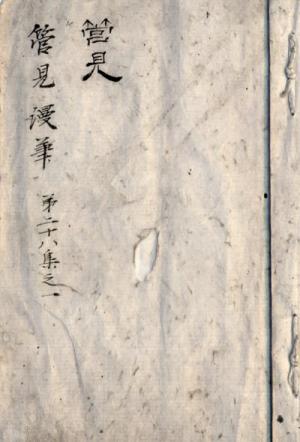 管見
管見謾筆 第二十八集之一